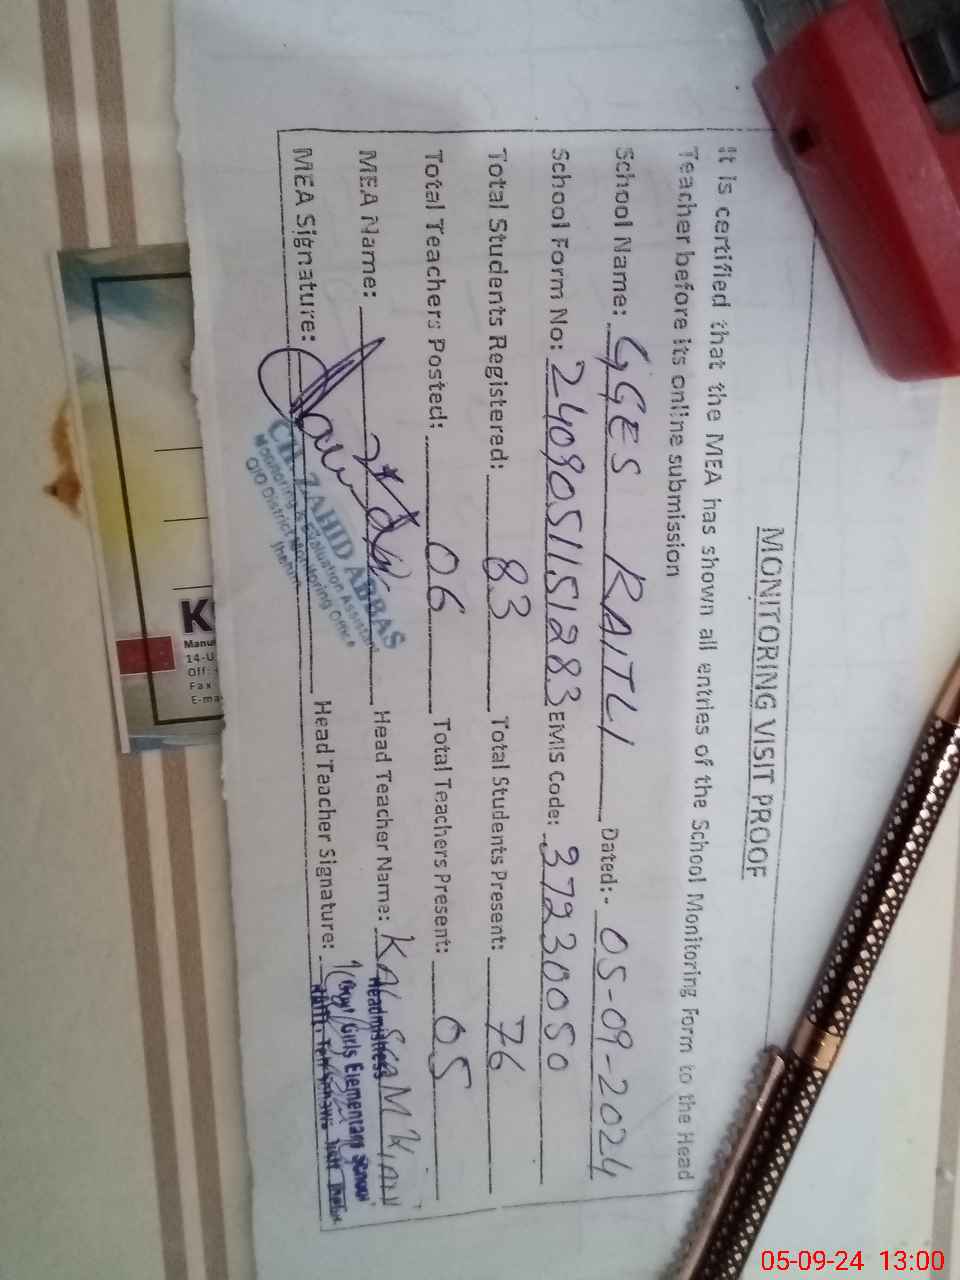 MONITORING VISIT PROOF
It is certified that the MEA has shown all entries of the School Monitoring Form to the Head
Teacher before its online submission
School Name: GGES RAITLI Dated:- 05-09-2024
School Form No: 24090511512 83 EMIS Code: 37230050
Total Students Registered: 83 Total Students Present: 76
Total Teachers Posted: 06 Total Teachers Present: 05
MEA Name: Head Teacher Name:
MEA Signature: Head Teacher Signature:
CH. ZAHID ABBAS
Monitoring & Evaluation Assistant
O/O District Monitoring Office
Jhelum
Headmistress
Govt Girls Elementary School
K
Manu
14-U
Off:
Fax
E-ma
05-09-24 13:00